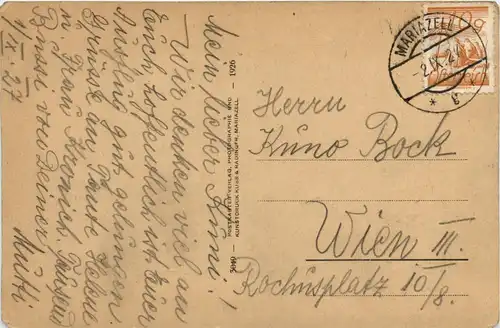 Mein lieber Kuni!
Wir denken viel an
Euch, hoffentlich ist Euer
Ausflug gut gelungen.
Grüsse an Tante Helene
u. Frau Kronich. Tausend
Bussi von Deiner
Mutti
1/IX. 27
5049
POSTKARTEN-VERLAG, PHOTOGRAPHIE UND
KUNSTDRUCK KUSS & MARIAZELL
1926
MARIAZELL
-2.IX.27
* g
Herrn
Kuno Bock
Wien III.
Rochusplatz 10/8.